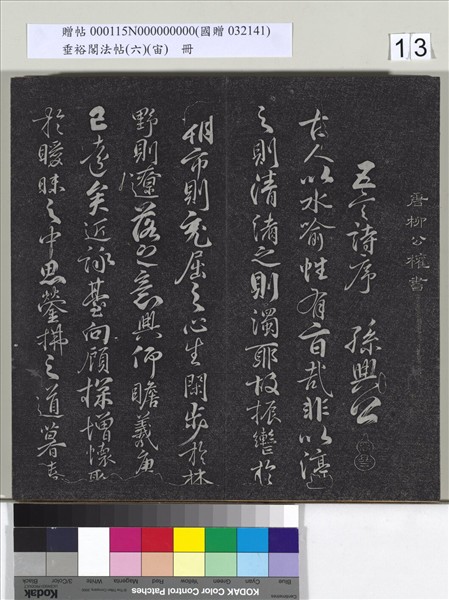 贈帖 000115N000000000(國贈 032141)
垂裕閣法帖(六)(宙) 冊
13
唐柳公權書
五言詩序 孫興公
古人以水喻性有旨哉非以渟
之則清淆之則濁耶故振轡於
朝市則充屈之心生閑步於林
野則遼落之意興仰瞻羲唐
已遠矣近詠臺閣顧探增懷
於曖昧之中思縈拂之道暮春
Blue Cyan Green Yellow Red Magenta White 3/Color Black
Kodak KODAK Color Control Patches